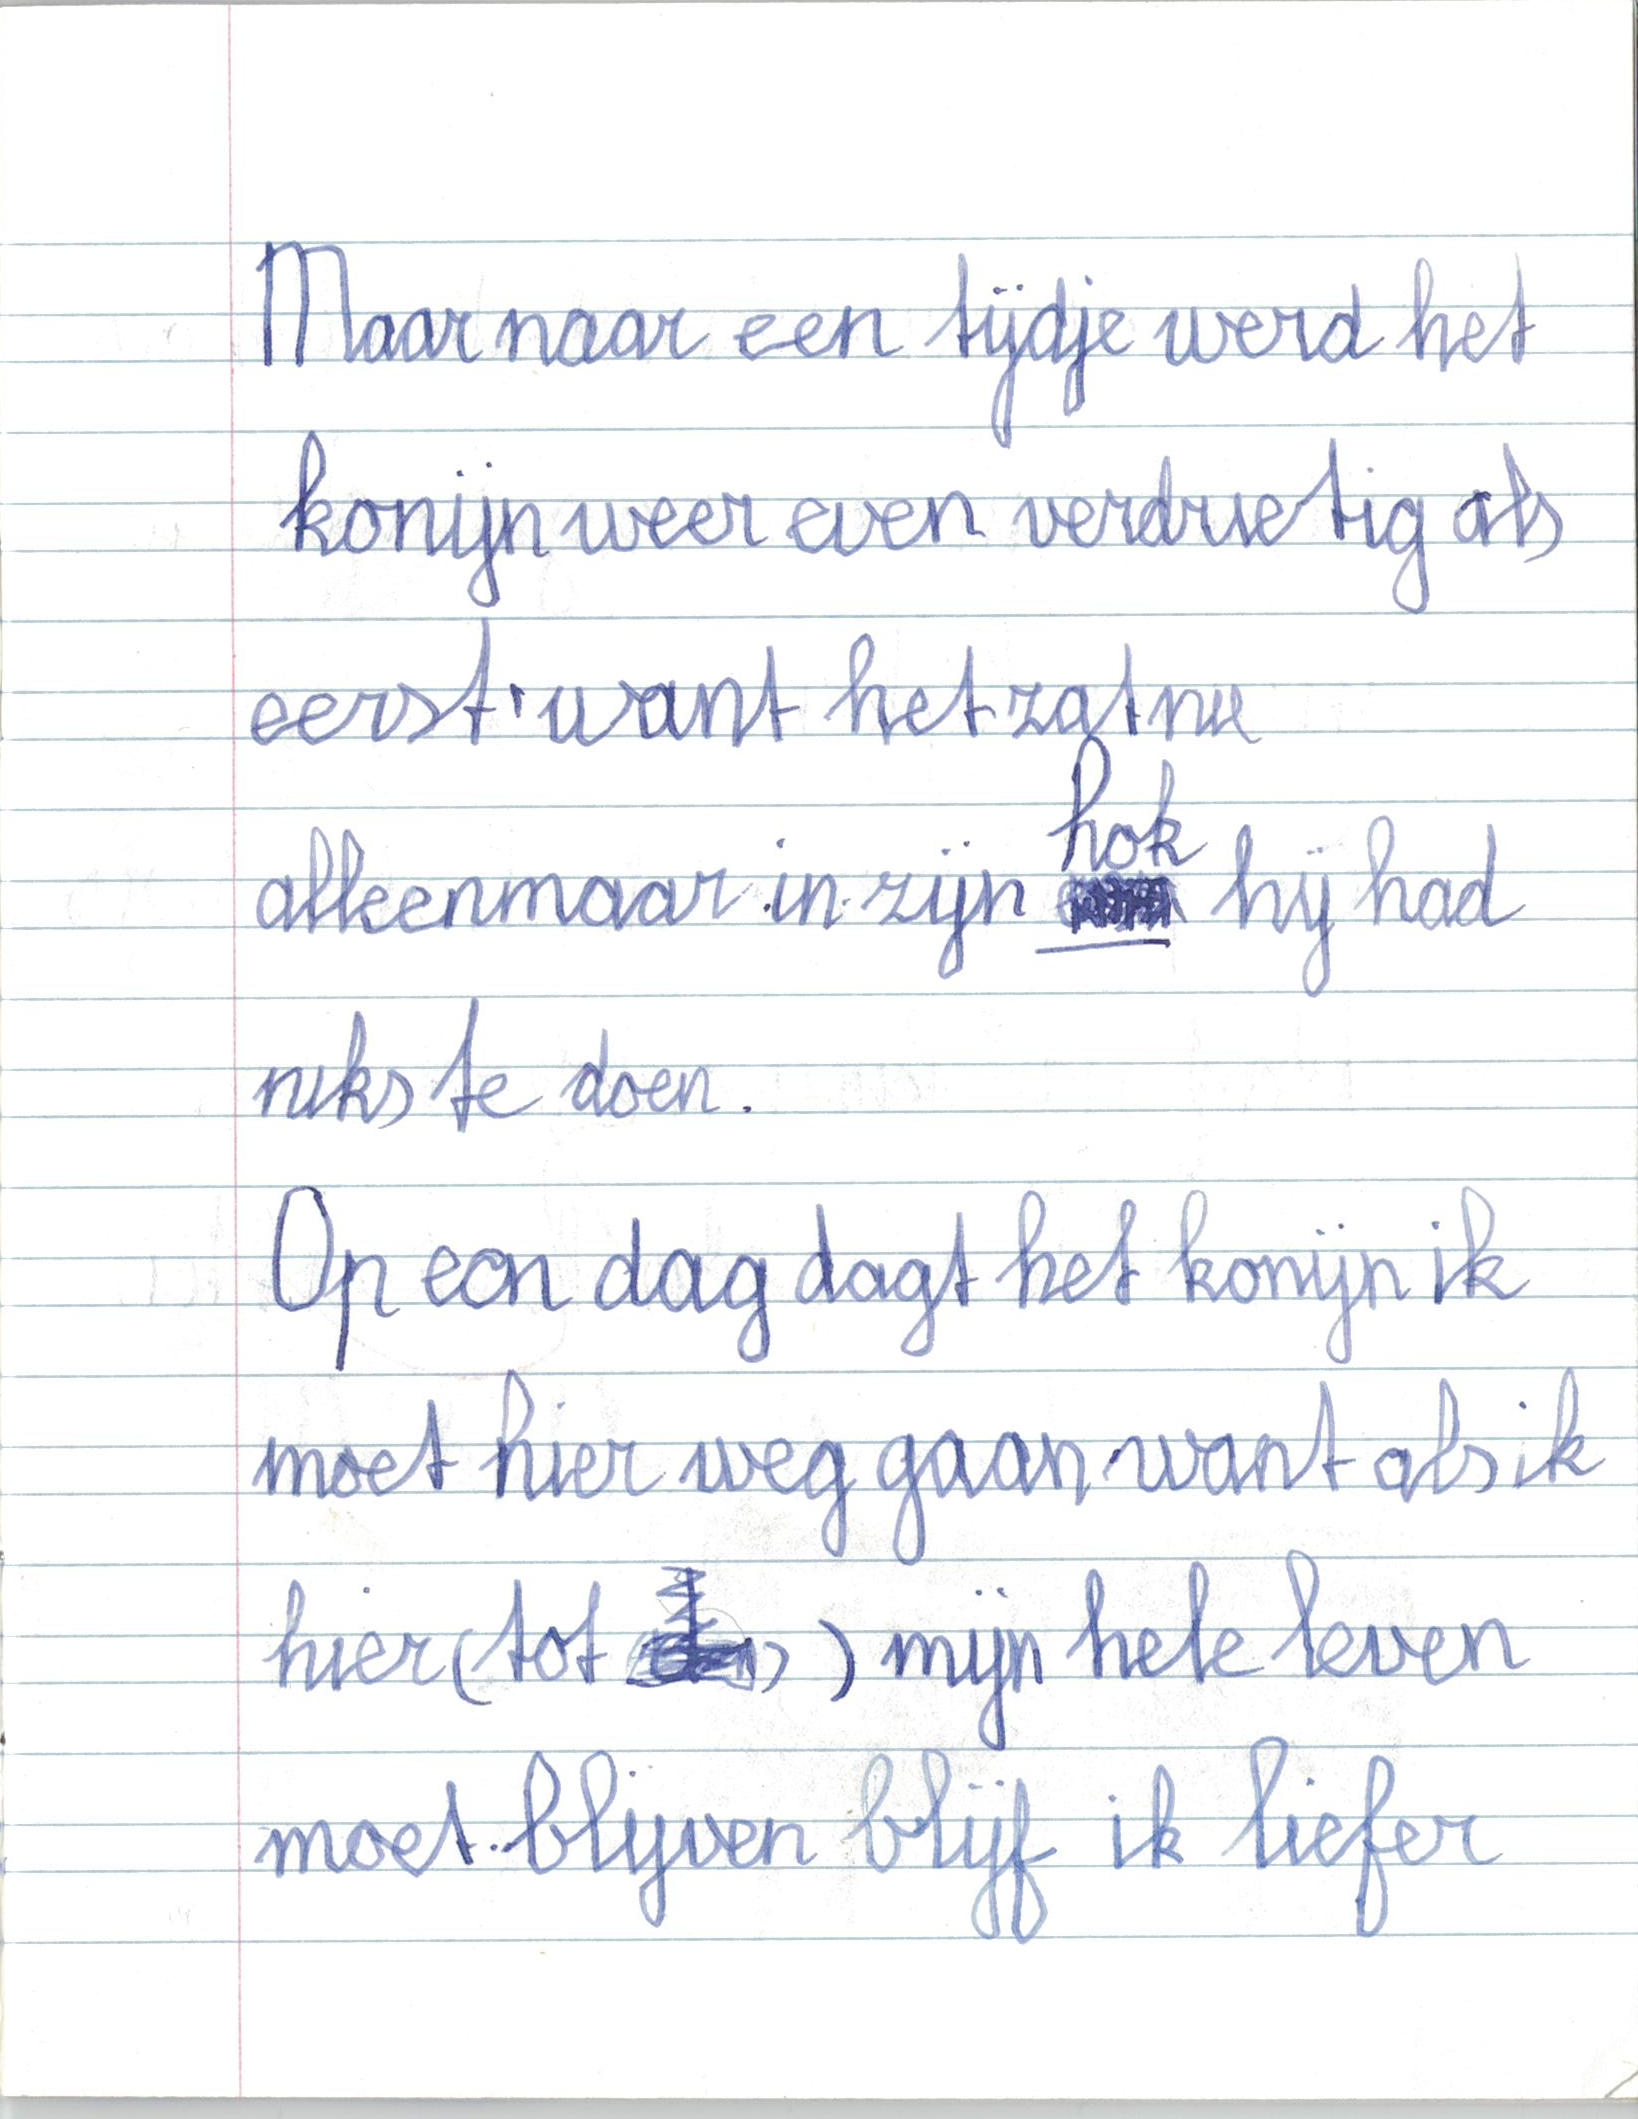 Maar naar een tijdje werd het
konijn weer even verdrietig als
eerst want het zat nu
alleenmaar in zijn hok hij had
niks te doen.
Op een dag dagt het konijn ik
moet hier weg gaan want als ik
hier (tot ) mijn hele leven
moet blijven blijf ik liefer